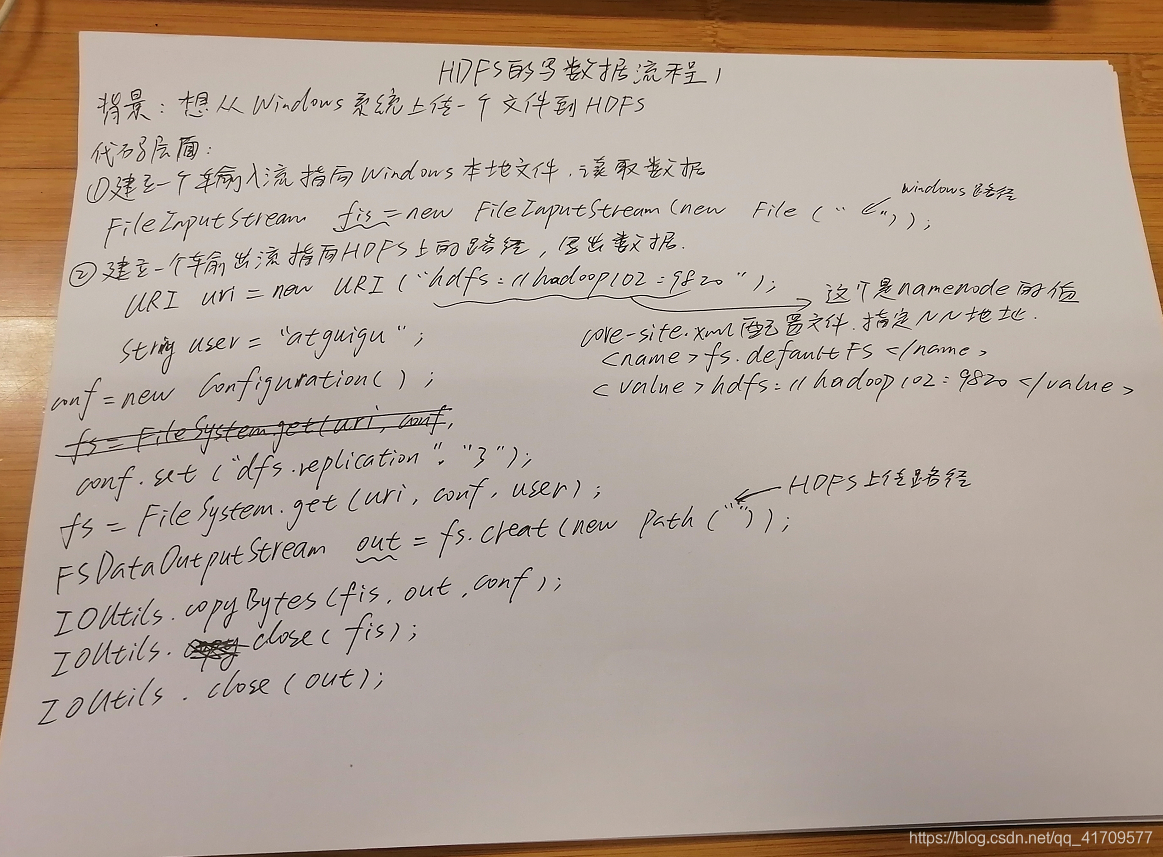 HDFS的写数据流程1
背景：想从Windows系统上传一个文件到HDFS
代码层面：
①建立一个输入流指向Windows本地文件.读取数据
windows路径
FileInputStream fis = new FileInputStream(new File(" "));
②建立一个输出流指向HDFS上的路径,写出数据.
URI uri = new URI("hdfs://hadoop102:9820");
这个是namenode的值
String user = "atguigu";
core-site.xml配置文件.指定NN地址.
<name>fs.defaultFS</name>
conf = new Configuration();
<value>hdfs://hadoop102:9820</value>
fs = FileSystem.get(uri, conf,
conf.set("dfs.replication". "3");
fs = FileSystem.get(uri, conf, user);
HDFS上传路径
FSDataOutputStream out = fs.creat(new path(""));
IOUtils.copyBytes(fis, out, conf);
IOUtils. close(fis);
IOUtils. close(out);
https://blog.csdn.net/qq_41709577